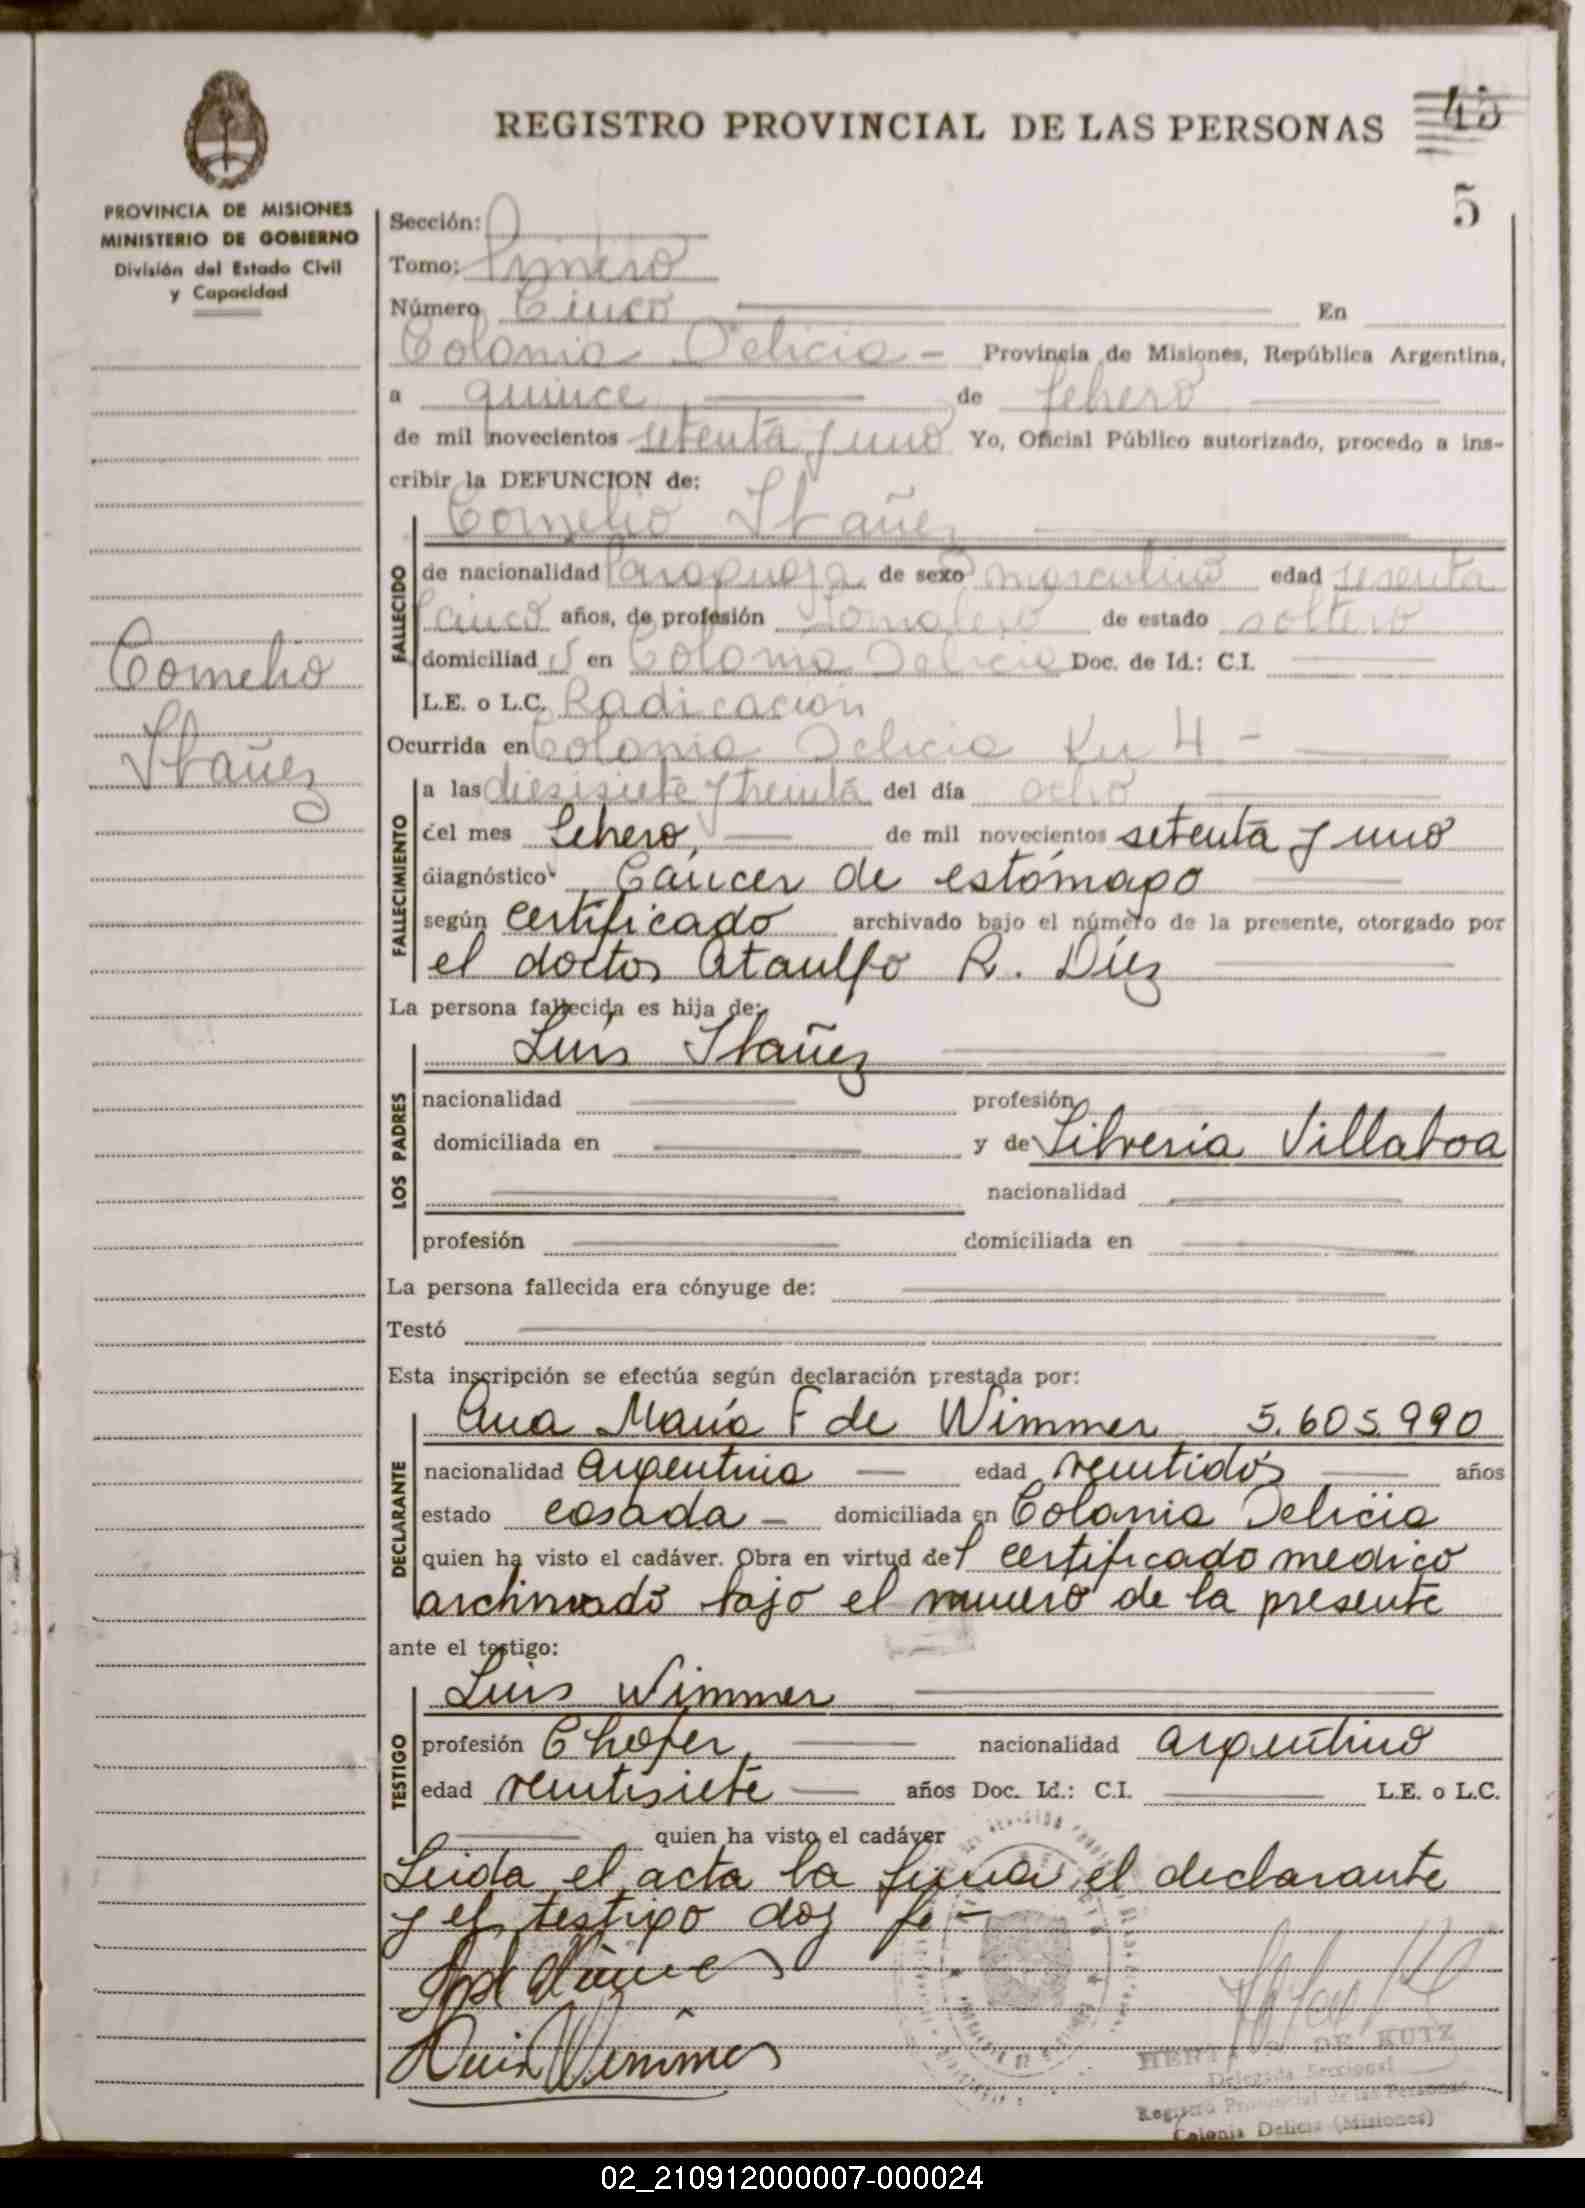 45
REGISTRO PROVINCIAL DE LAS PERSONAS
5
PROVINCIA DE MISIONES
MINISTERIO DE GOBIERNO
División del Estado Civil
y Capacidad
Cornelio
Ibañez
Sección:
Tomo: Primero
Número Cinco En
Colonia Delicia - Provincia de Misiones, República Argentina,
a quince de febrero
de mil novecientos setenta y uno Yo, Oficial Público autorizado, procedo a ins-
cribir la DEFUNCION de:
Cornelio Ibañez
FALLECIDO
de nacionalidad Paraguaya de sexo masculino edad sesenta
y cinco años, de profesión Jornalero de estado soltero
domiciliad o en Colonia Delicia Doc. de Id.: C.I.
L.E. o L.C. Radicación
Ocurrida en Colonia Delicia Km 4 -
FALLECIMIENTO
a las diesisiete y treinta del día ocho
del mes febrero, de mil novecientos setenta y uno
diagnóstico Cancer de estómago
según certificado archivado bajo el número de la presente, otorgado por
el doctor Ataulfo R. Díez
La persona fallecida es hija de:
LOS PADRES
Luis Ibañez
nacionalidad profesión
domiciliada en y de Silveria Villaboa
nacionalidad
profesión domiciliada en
La persona fallecida era cónyuge de:
Testó
Esta inscripción se efectúa según declaración prestada por:
DECLARANTE
Ana María F de Wimmer 5.605.990
nacionalidad argentina edad veintidós años
estado casada - domiciliada en Colonia Delicia
quien ha visto el cadáver. Obra en virtud del certificado medico
archivado bajo el numero de la presente
ante el testigo:
TESTIGO
Luis Wimmer
profesión Chofer, nacionalidad argentino
edad veintisiete años Doc. Id.: C.I. L.E. o L.C.
quien ha visto el cadáver
Leida el acta la firma el declarante
y el testigo doy fe -
Luis Wimmer
DE KUTZ
Delegada Seccional
Registro Provincial de las Personas
Colonia Delicia (Misiones)
02_210912000007-000024